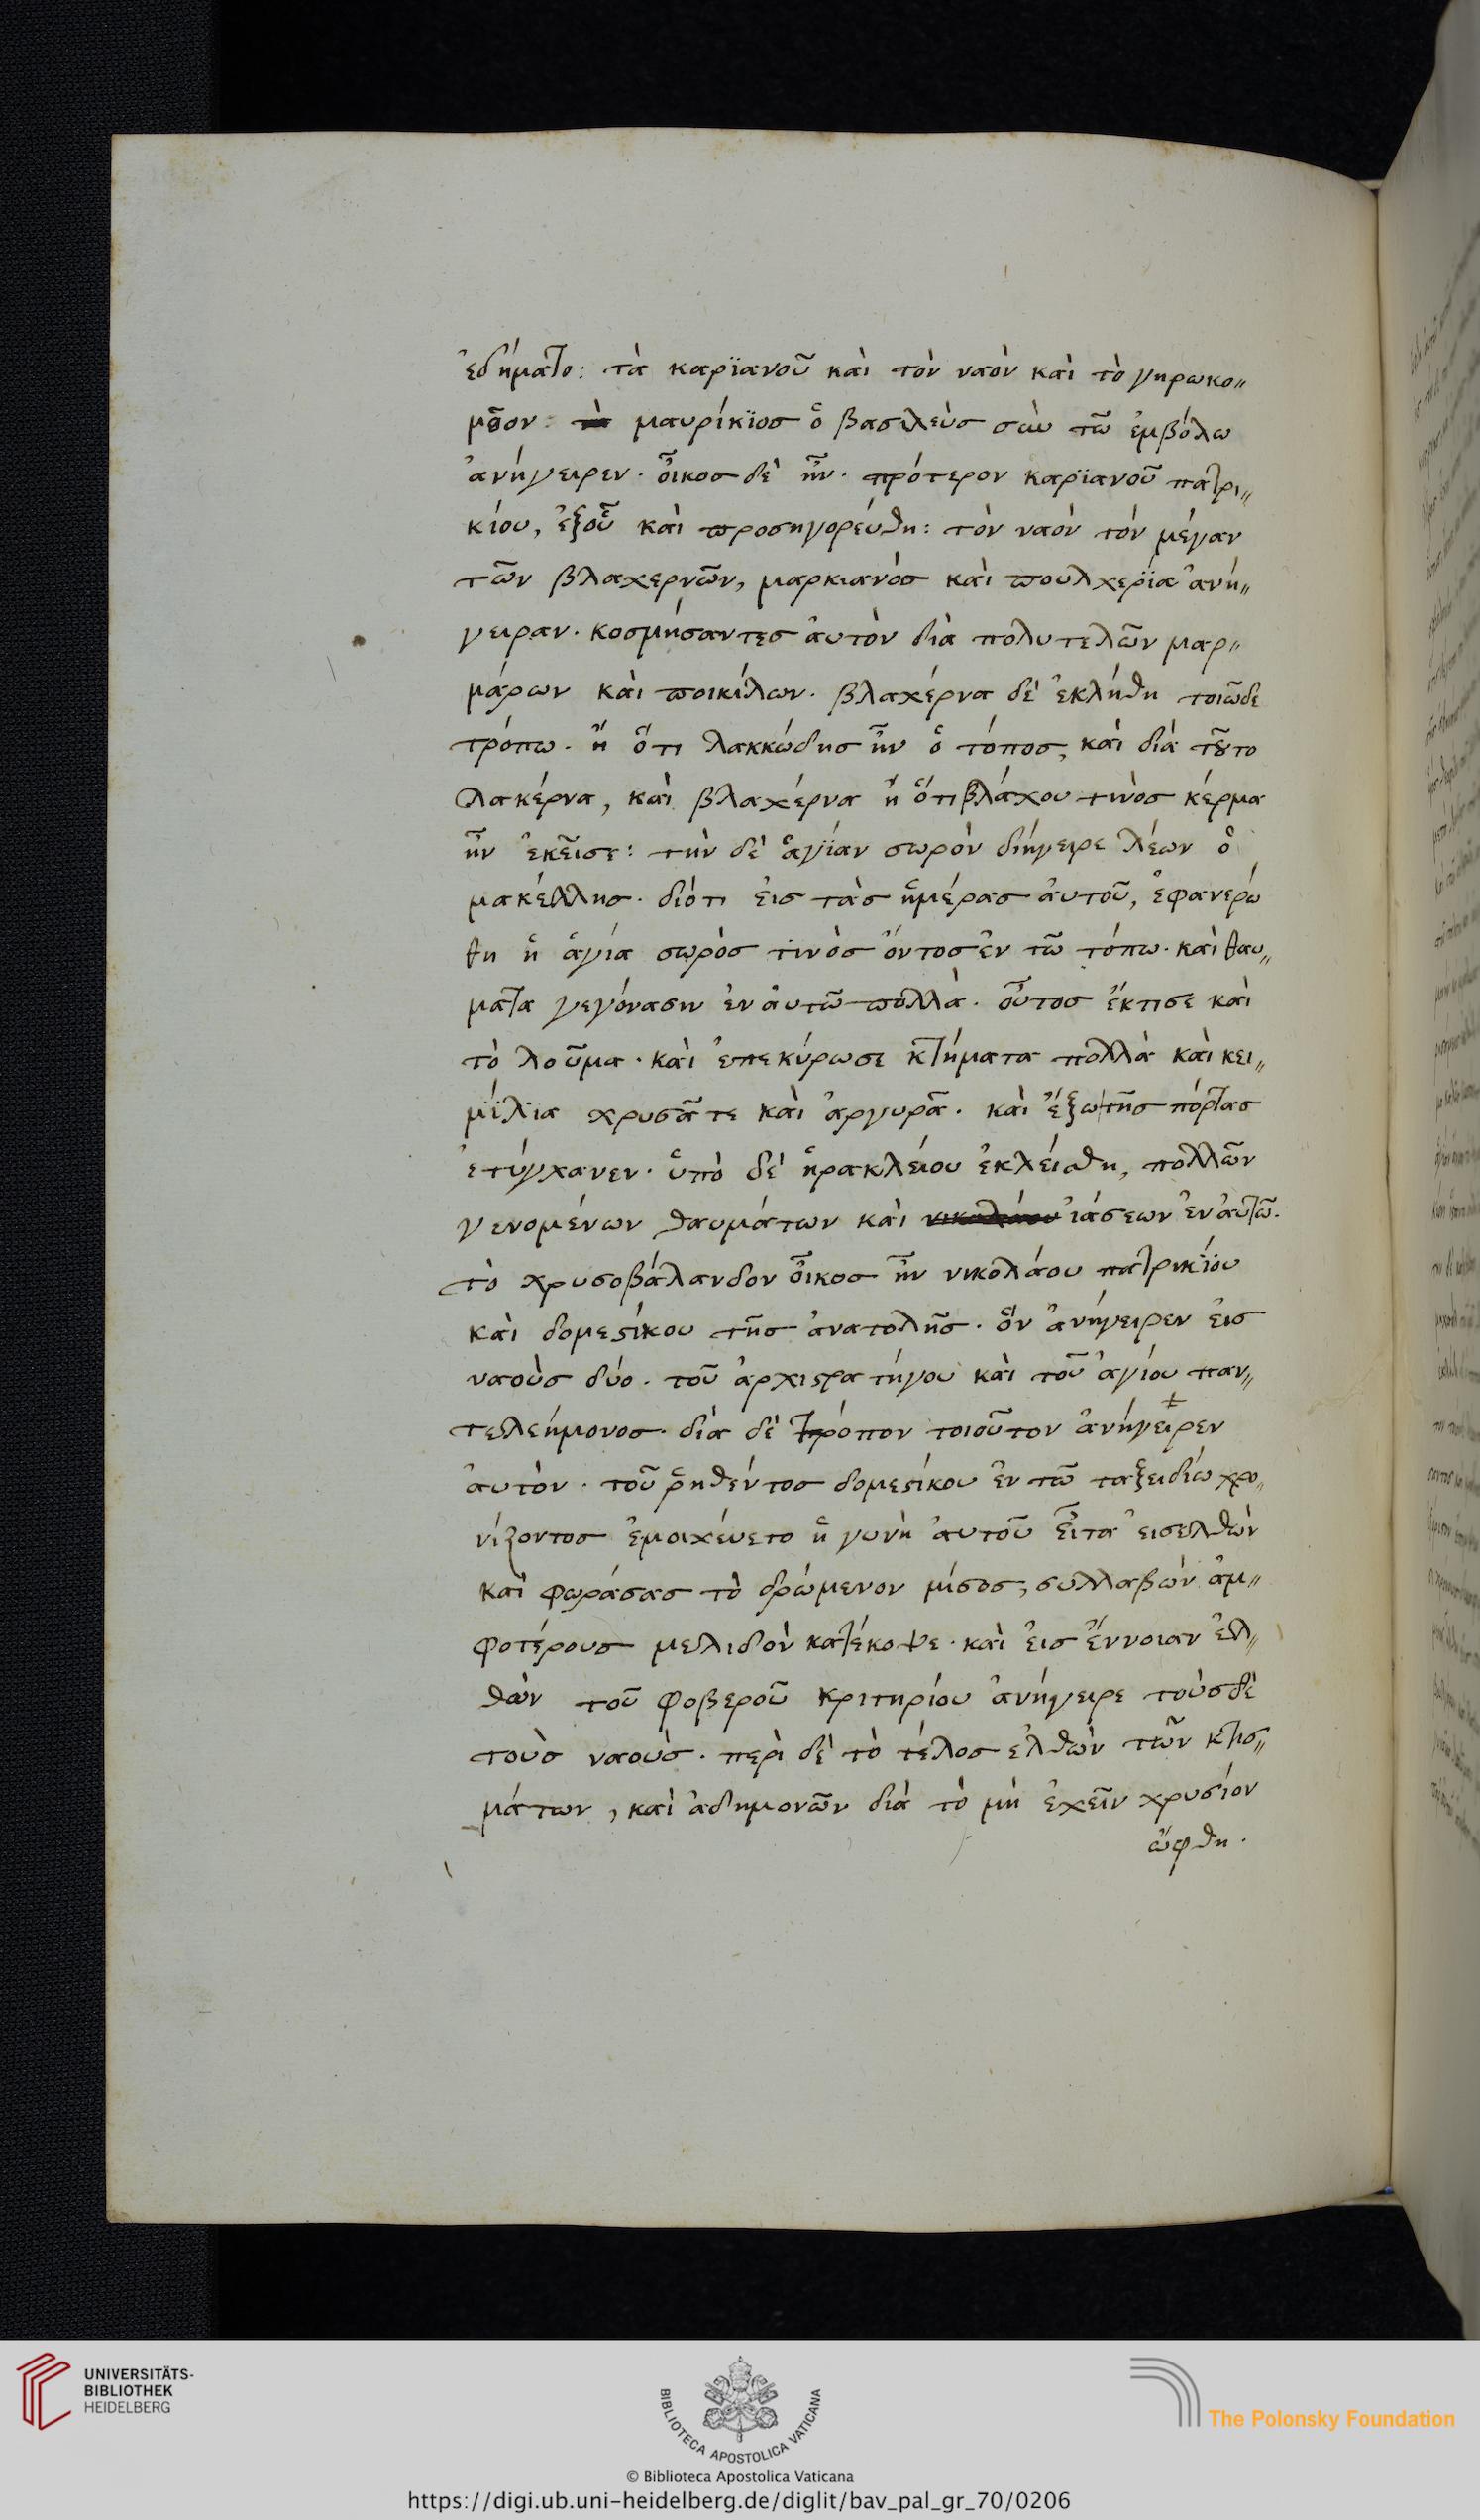 ἐδήματο: τὰ καρϊανοῦ καὶ τὸν ναὸν καὶ τὸ γηρωκο〃
μεῖον: μαυρίκϊος ὁ βασιλεὺς σὺν τῶ ἐμβόλω
ἀνήγειρεν· οἶκος δὲ ἦν· πρότερον καρϊανοῦ πατρι〃
κίου, ἐξοὗ καὶ προσηγορεύθη: τὸν ναὸν τὸν μέγαν
τῶν βλαχερνῶν, μαρκιανὸσ καὶ πουλχερϊα ἀνή〃
γειραν· κοσμήσαντες ἀυτὸν διὰ πολυτελῶν μαρ〃
μάρων καὶ ποικίλων· βλαχέρνα δὲ ἐκλήθη τοιῶδε
τρόπω· ἢ ὅτι λακκώδης ἦν ὁ τόπος, καὶ διὰ τοῦτο
λακέρνα, καὶ βλαχέρνα ἢ ὅτι βλάχου τινὸς κέρμα
ἦν ἐκεῖσε: τὴν δὲ ἁγίαν σωρὸν διήγειρε λέων ὁ
μακέλλης· διότι ἐις τὰς ἡμέρας ἀυτοῦ, ἐφανερώ
θη ἡ ἁγία σωρὸς τινὸς ὄντος ἐν τῶ τόπω· καὶ θαυ〃
ματα γεγόνασιν ἐν ἀυτῶ πολλὰ· οὗτος ἔκτισε καὶ
τὸ λοῦμα· καὶ ἐπεκύρωσε κτήματα πολλὰ καὶ κει〃
μϊλια χρυσᾶ τε καὶ ἀργυρᾶ· καὶ ἔξω τῆς πόρτας
ἐτύγχανεν· ὑπὸ δὲ ἡρακλείου ἐκλείσθη, πολλῶν
γενομένων θαυμάτων καὶ νικολάου ἰάσεων ἐν ἀυτῶ.
τὸ χρυσοβάλανδον οἶκος ἦν νικολάου πατρικϊου
καὶ δομεστίκου τῆς ἀνατολῆς· ὃν ἀνήγειρεν ἐις
ναοὺς δύο· τοῦ ἀρχιστρατήγου καὶ τοῦ ἁγίου παν〃
τελεήμονος· διὰ δὲ τρόπον τοιοῦτον ἀνήγειρεν
ἀυτὸν· τοῦ ῥηθέντος δομεστίκου ἐν τῶ ταξειδίω χρο〃
νίζοντος ἐμοιχέυετο ἡ γυνὴ ἀυτοῦ εἶτα ἐισελθὼν
καὶ φωράσας τὸ δρώμενον μίσος, συλλαβὼν ἀμ〃
φοτέρους μελιδὸν κατέκοψε· καὶ ἐις ἔννοιαν ἐλ〃
θὼν τοῦ φοβεροῦ κριτηρίου ἀνήγειρε τούσδὲ
τοὺς ναοὺς· περὶ δὲ τὸ τέλος ἐλθὼν τῶν κτισ〃
μάτων, καὶ ἀδημονῶν διὰ τὸ μὴ ἐχεῖν χρυσίον
ὤφθη·
UNIVERSITÄTS-
BIBLIOTHEK
HEIDELBERG
BIBLIOTECA APOSTOLICA VATICANA
The Polonsky Foundation
© Biblioteca Apostolica Vaticana
https://digi.ub.uni-heidelberg.de/diglit/bav_pal_gr_70/0206